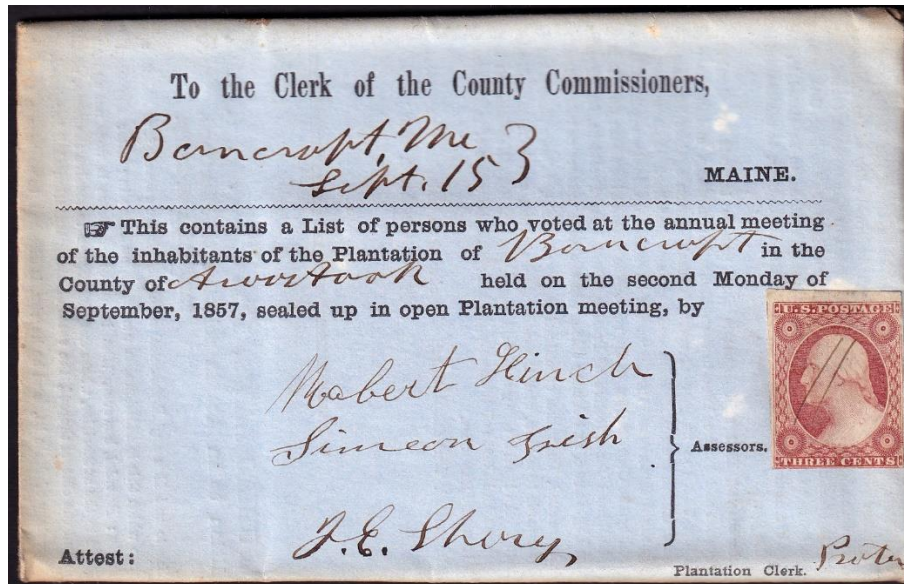 To the Clerk of the County Commissioners,
Bancroft, Me
Sept. 15
MAINE.
☞ This contains a List of persons who voted at the annual meeting
of the inhabitants of the Plantation of Bancroft in the
County of Aroostook held on the second Monday of
September, 1857, sealed up in open Plantation meeting, by
U.S. POSTAGE
Robert Hinch
Simeon Irish
Assessors.
THREE CENTS
J. E. Shorey
Attest:
Plantation Clerk.